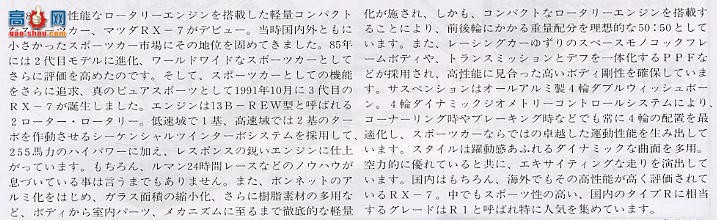 高网
性能なロータリーエンジンを搭載した軽量コンパクト
カー、マツダRX－7がデビュー。当時国内外ともに
小さかったスポーツカー市場にその地位を固めてきました。85年
には2代目モデルに進化、ワールドワイドなスポーツカーとして
さらに評価を高めたのです。そして、スポーツカーとしての機能
をさらに追求、真のピュアスポーツとして1991年10月に3代目の
RX－7が誕生しました。エンジンは13B－REW型と呼ばれる
2ローター・ロータリー。低速域で1基、高速域では2基のター
ボを作動させるシーケンシャルツインターボシステムを採用して、
255馬力のハイパワーに加え、レスポンスの鋭いエンジンに仕上
がっています。もちろん、ルマン24時間レースなどのノウハウが
息づいている事は言うまでもありません。また、ボンネットのア
ルミ化をはじめ、ガラス面積の縮小化、さらに樹脂素材の多用な
ど、ボディから室内パーツ、メカニズムに至るまで徹底的な軽量
化が施され、しかも、コンパクトなロータリーエンジンを搭載す
ることにより、前後輪にかかる重量配分を理想的な50:50として
います。また、レーシングカーゆずりのスペースモノコックフレ
ームボディや、トランスミッションとデフを一体化するPPFな
どが採用され、高性能に見合った高いボディ剛性を確保していま
す。サスペンションはオールアルミ製4輪ダブルウィッシュボー
ン。4輪ダイナミックジオメトリーコントロールシステムにより、
コーナーリング時やブレーキング時などでも常に4輪の配置を最
適化し、スポーツカーならではの卓越した運動性能を生み出して
います。スタイルは躍動感あふれるダイナミックな曲面を多用。
空力的に優れていると共に、エキサイティングな走りを演出して
います。国内はもちろん、海外でもその高性能が高く評価されて
いるRX－7。中でもスポーツ性の高い、国内のタイプRに相当
するグレードはR1と呼ばれ特に人気を集めています。